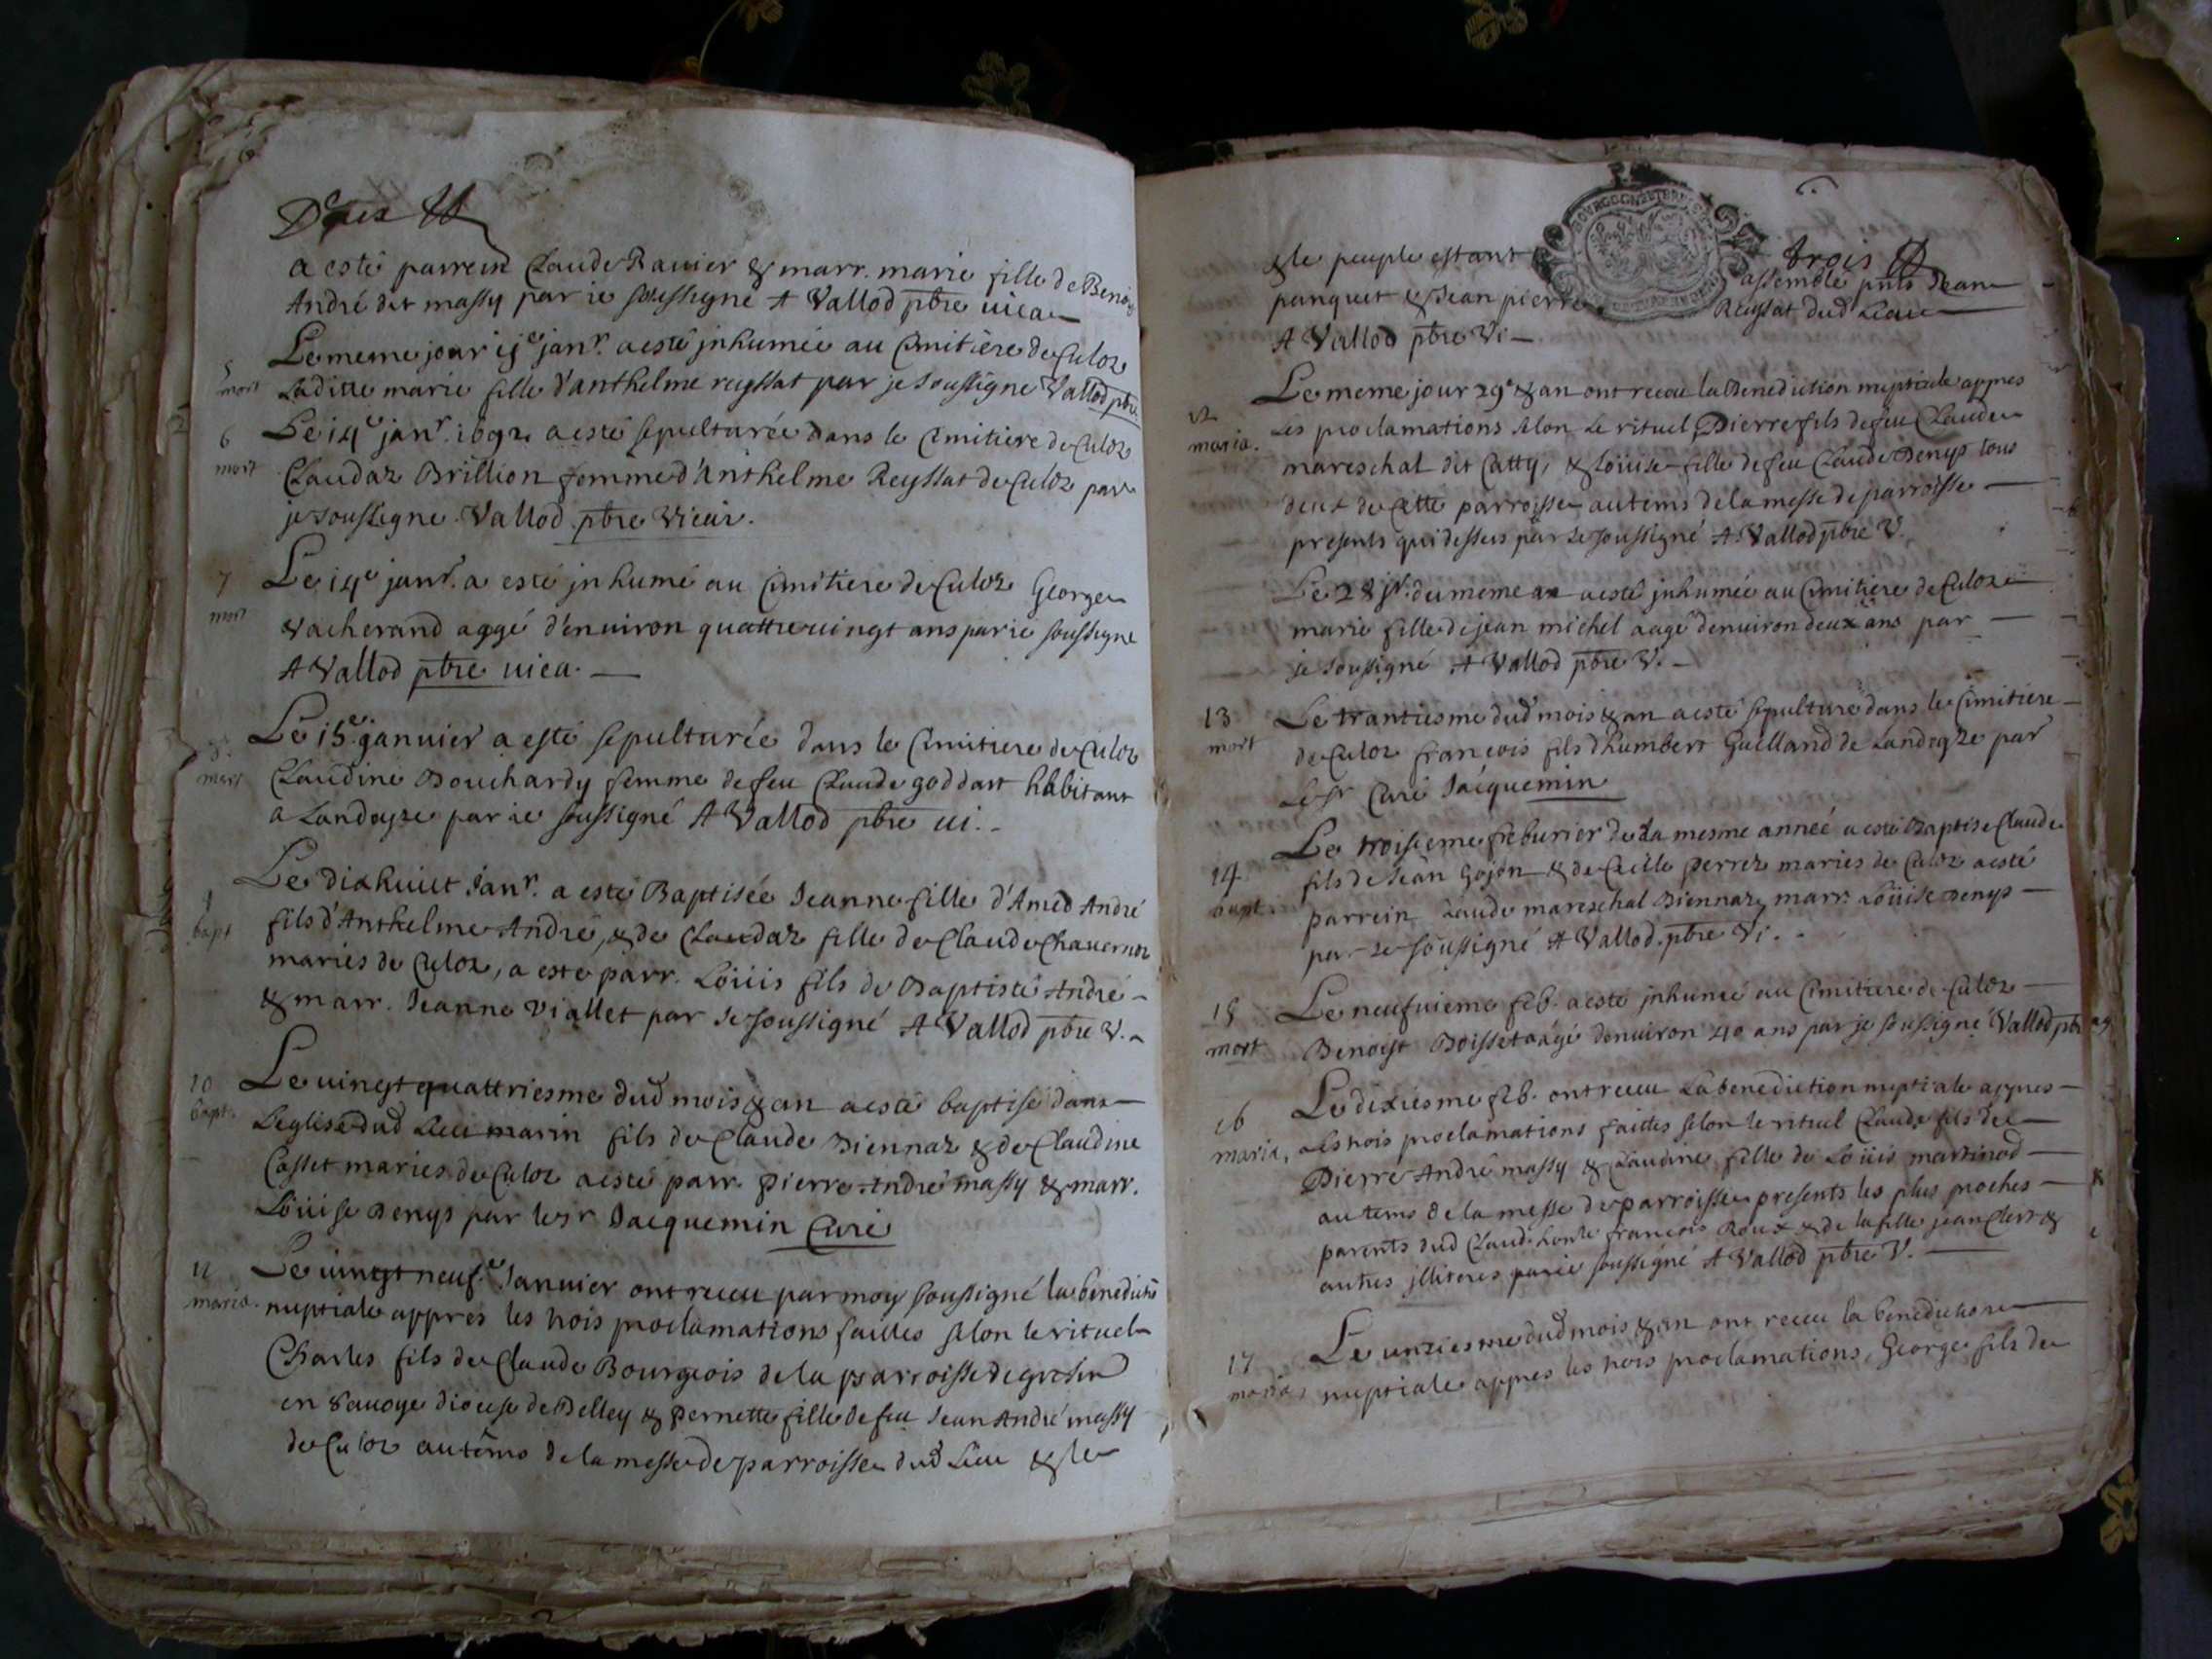 Deux
a esté parrein Claude Ravier & marr. marie fille de Benoi
André dit massy par ie soussigné A Vallod pbre vica
5 mort
Le meme jour ije janr. a esté jnhumée au Cimitière de Culoz
Laditte marie fille d'anthelme reyssat par je soussigné Vallod pbre
6 mort
Le 14e janr. 1692 a esté sepulturée dans le Cimitiere de Culoz
Claudaz Brillion femme d'Anthelme Reyssat de Culoz par
je soussigné. Vallod pbre Vicair.
7 mort
Le 14e janr. a esté jnhumé au Cimitiere de Culoz George
Vacherand aggé d'enuiron quattreuingt ans par ie soussigné
A Vallod pbre vica.
8 mort
Le 15e ganuier a esté sepulturée dans le Cimitiere de Culoz
Claudine Bouchardy femme de feu Claude goddart habitant
a Landayze par ie soussigné A Vallod pbre vi.
9 bapt
Le dixhuict Janr. a esté Baptisée Jeanne fille d'Amed André
fils d'Anthelme André, & de Claudaz fille de Claude Chauernoz
mariés de Culoz, a esté parr. Loüis fils de Baptiste André
& marr. Jeanne Viallet par Je soussigné A Vallod pbre V.
10 bapt.
Le uingt quattriesme dud mois & an a esté baptisé dans
Leglise dud Lieu marin fils de Claude Biennaz & de Claudine
Casset mariés de Culoz a esté parr. Pierre André massy & marr.
Loüise Denys par le sr Jacquemin Curé
11 maria.
Le uingt neufe Januier ont receu par moy soussigné la benedictio
nuptiale appres les trois proclamations faittes selon le rituel
Charles fils de Claude Bourgeois de la parroisse de gresin
en Sauoye diocese de Belley & Pernette fille de feu Jean André massy
de Culoz au téms de la messe de parroisse dud Lieu & le
trois
BOURGOGNE ET BRESSE
& le peuple estant assemblé puis Jean
punquet & Jean pierre Reyssat dud Lieu
A Vallod pbre Vi
12 maria.
Le meme jour 29e & an ont receu la Benediction nuptiale appres
Les proclamations selon Le rituel Pierre fils de feu Claude
mareschal dit Catty, & Loüise fille de feu Claude Denys tous
deux de Cette parroisse au tems de la messe de parroisse
presents qui dessus par Je soussigné A Vallod pbre V.
Le 28 jr. du meme an a esté jnhumée au Cimitiere de Culoz
marie fille de jean michel aagé denuiron deux ans par
je soussigné A Vallod pbre V.
13 mort
Le trantiesme dud mois & an a esté sepulturé dans le Cimitiere
de Culoz françois fils d'humbert Guilland de Landayze par
Le sr Curé Jacquemin
14 bapt.
Le troisieme feburier de La mesme année a esté Baptisé Claude
fils de Jean Gojon & de Cecille Perrez mariés de Culoz a esté
parrein Claude mareschal Biennaz marr. Loüise Denys
par Je soussigné A Vallod. pbre Vi.
15 mort
Le neufuieme feb. a esté jnhumé au Cimitiere de Culoz
Benoist Boisset aâgé denuiron 40 ans par je soussigné Vallod pbr
16 maria.
Le dixiesme feb. ont receu La benediction nuptiale appres
Les trois proclamations faittes selon le rituel Claude fils de
Pierre André massy & Claudine fille de Loüis martinod
au tems de la messe de parroisse presents les plus proches
parents dud Claude françois Roux & de la fille jean Clert &
autres jlliterés par ie soussigné A Vallod pbre V.
17 maria.
Le unziesme dud mois & an ont receu la benediction
nuptiale appres les trois proclamations George fils de